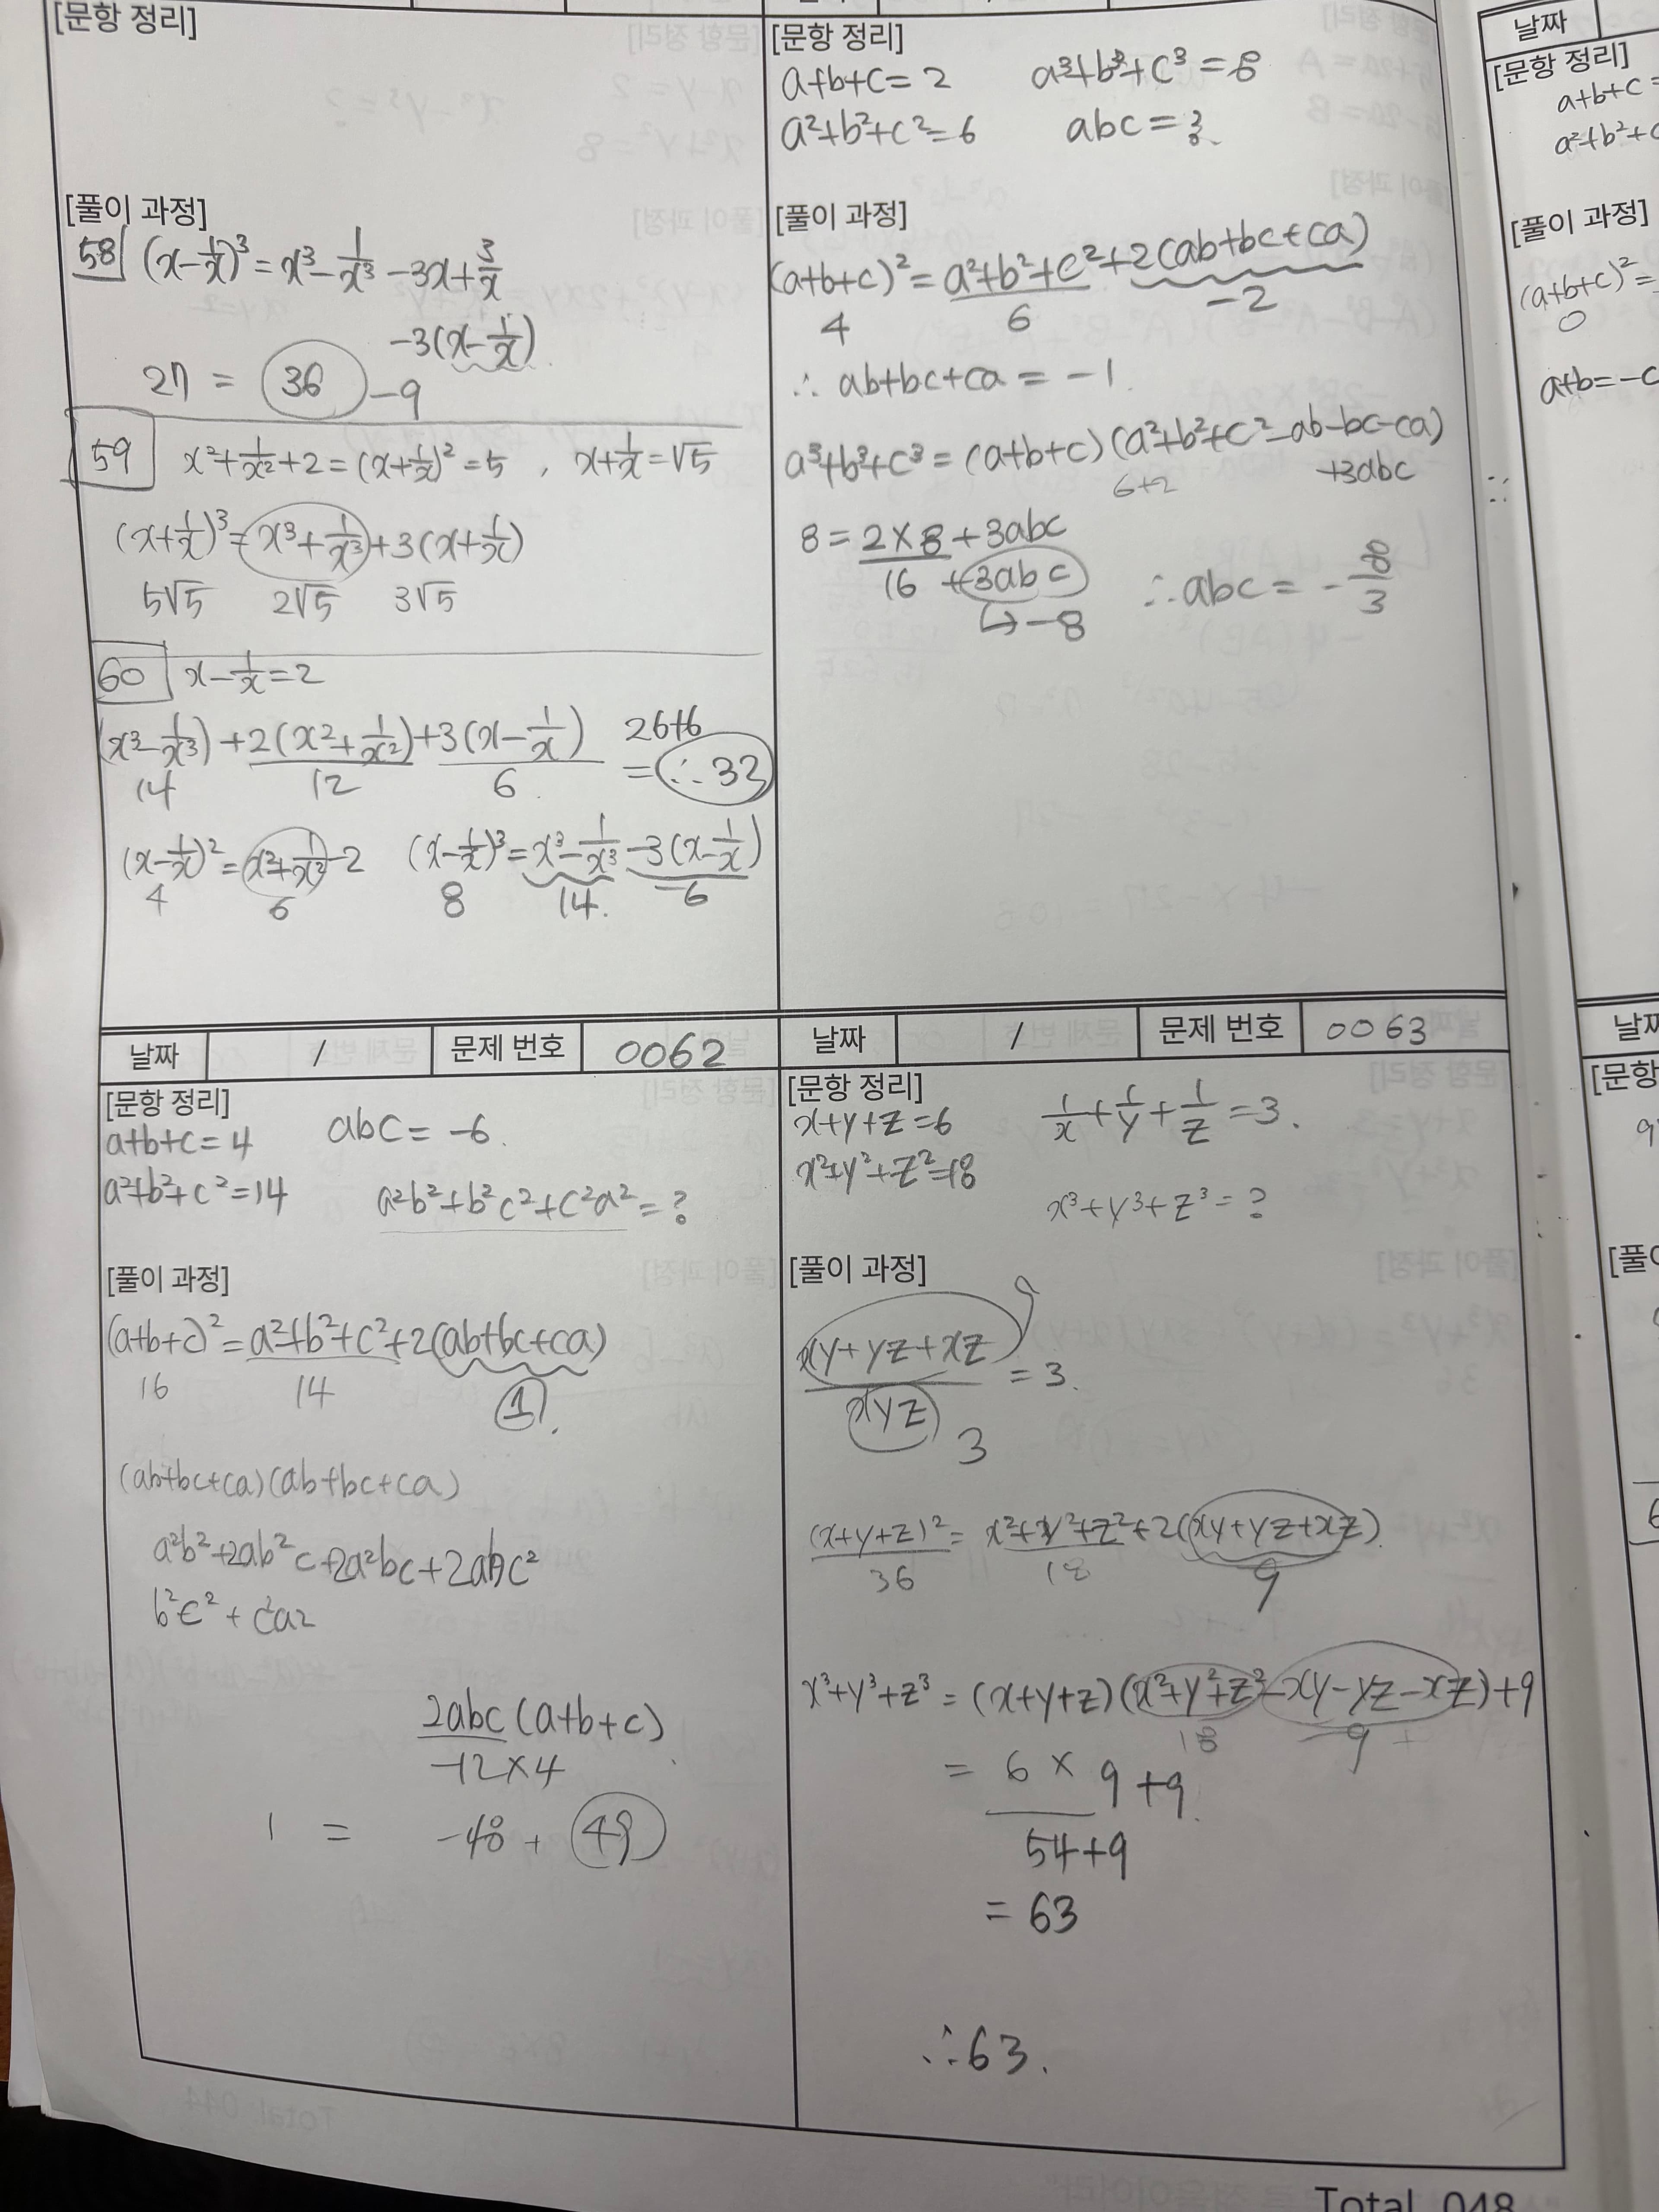 [문항 정리]
[풀이 과정]
58 (x-1/x)³=x³-1/x³-3x+3/x
-3(x-1/x)
27 = 36 -9
59 x²+1/x²+2=(x+1/x)²=5 , x+1/x=√5
(x+1/x)³=x³+1/x³+3(x+1/x)
5√5 2√5 3√5
60 x-1/x=2
(x³-1/x³)+2(x²+1/x²)+3(x-1/x) 26+6
14 12 6 =∴32
(x-1/x)²=x²+1/x²-2 (x-1/x)³=x³-1/x³-3(x-1/x)
4 6 8 14. -6
[문항 정리]
a+b+c=2 a³+b³+c³=8
a²+b²+c²=6 abc=?
[풀이 과정]
(a+b+c)²=a²+b²+c²+2(ab+bc+ca)
4 6 -2
∴ab+bc+ca=-1.
a³+b³+c³=(a+b+c)(a²+b²+c²-ab-bc-ca)
6+2 +3abc
8=2×8+3abc
16 +3abc ∴abc=-8/3
↳-8
날짜 / 문제 번호 0062
[문항 정리]
a+b+c=4 abc=-6.
a²+b²+c²=14 a²b²+b²c²+c²a²=?
[풀이 과정]
(a+b+c)²=a²+b²+c²+2(ab+bc+ca)
16 14 1.
(ab+bc+ca)(ab+bc+ca)
a²b²+2ab²c+2a²bc+2abc²
b²c²+c²a2
2abc(a+b+c)
-12×4
1 = -48 + 49
날짜 / 문제 번호 0063
[문항 정리]
x+y+z=6 1/x+1/y+1/z=3.
x²+y²+z²=18
x³+y³+z³=?
[풀이 과정]
9
xy+yz+xz/xyz =3.
3
(x+y+z)²=x²+y²+z²+2(xy+yz+xz).
36 18 9
x³+y³+z³=(x+y+z)(x²+y²+z²-xy-yz-xz)+9
18 -9
= 6 × 9 +9.
54+9
= 63
∴63.
Total 048
날짜
[문항 정리]
a+b+c=
a²+b²+c
[풀이 과정]
(a+b+c)²=
0
a+b=-c
날짜
[문항
[풀이